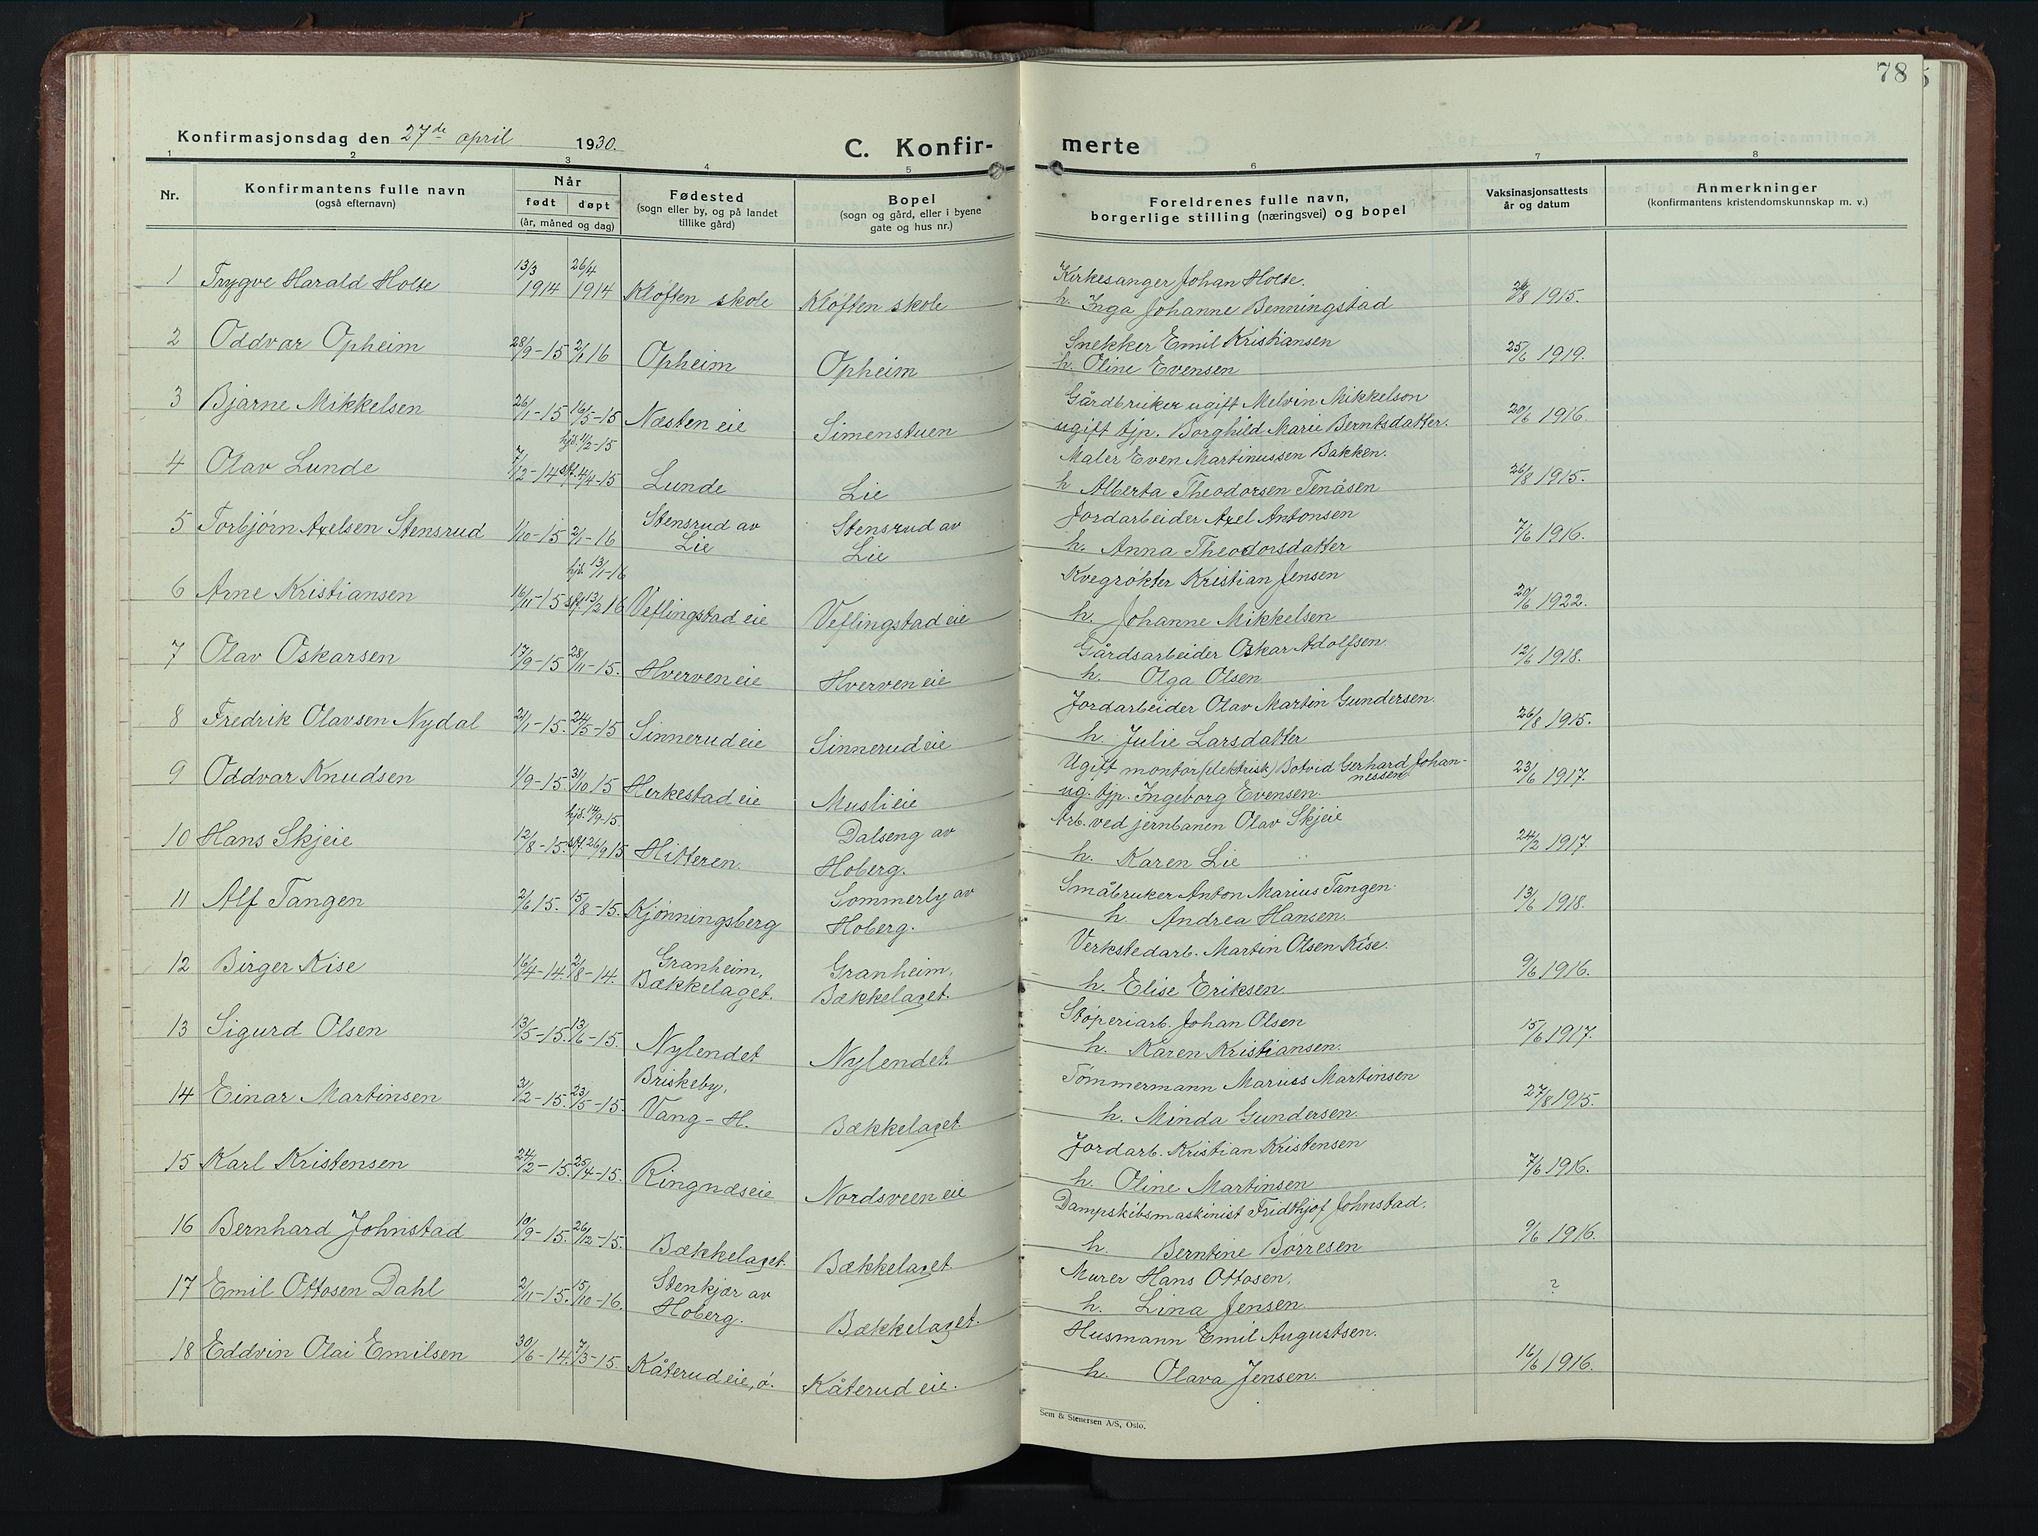 78
Konfirmasjonsdag den 27de april 1930.
C. Konfir-
merte
1 2 3 4 5 6 7 8
Nr.
Konfirmantens fulle navn
(også efternavn)
Når
født døpt
(år, måned og dag)
Fødested
(sogn eller by, og på landet
tillike gård)
Bopel
(sogn og gård, eller i byene
gate og hus nr.)
Foreldrenes fulle navn,
borgerlige stilling (næringsvei) og bopel
Vaksinasjonsattests
år og datum
Anmerkninger
(konfirmantens kristendomskunnskap m. v.)
1 Trygve Harald Holte 13/3 1914 26/4 1914 Kløften skole Kløften skole Kirkesanger Johan Holte.
h. Inga Johanne Benningstad 26/8 1915.
2 Oddvar Opheim 28/9-15 2/1 16 Opheim Opheim Snekker Emil Kristiansen
h. Oline Evensen 25/6 1919.
3 Bjarne Mikkelsen 26/1-15 16/5-15 Næsten eie Simenstuen Gårdbruker ugift Melvin Mikkelson
ugift tjp. Borghild Marie Berntsdatter. 20/6 1916.
4 Olav Lunde 7/12-14 hjd. 11/2-15 stf. 4/4-15 Lunde Lie Maler Even Martinussen Bakken.
h Alberta Theodorsen Tenåsen 26/8 1915.
5 Torbjørn Axelsen Stensrud 1/10-15 2/1-16 Stensrud av Lie Stensrud av Lie Jordarbeider Axel Antonsen
h. Anna Theodorsdatter 7/6 1916.
6 Arne Kristiansen 16/11-15 hjd. 13/1-16 stf 13/2 16 Veflingstad eie Veflingstad eie Kvegrøkter Kristian Jensen
h. Johanne Mikkelsen 20/6 1922.
7 Olav Oskarsen 17/9-15 28/11-15. Hverven eie Hverven eie Gårdsarbeider Oskar Adolfsen.
h. Olga Olsen 12/6 1918.
8 Fredrik Olavsen Nydal 2/1-15. 24/5-15 Sinnerud eie Sinnerud eie Jordarbeider Olav Martin Gundersen.
h. Julie Larsdatter 26/8 1915.
9 Oddvar Knudsen 1/9-15. 31/10 15 Herkestad eie Musli eie Ugift montør (elektrisk) Botvid Gerhard Johan-
nessen
ug. tjp. Ingeborg Evensen. 23/6 1917.
10 Hans Skjeie 12/8-15. hjd. 14/9-15. stf. 26/9 15 Hitteren. Dalseng av Hoberg. Arb. ved jernbanen Olav Skjeie
h. Karen Lie " 24/2 1917.
11 Alf Tangen 2/6 15. 15/8-15. Kjønningsberg Sommerby av Hoberg. Småbruker Anton Marius Tangen.
h. Andrea Hansen. 13/6 1918.
12 Birger Kise 16/4-14. 2/8-14. Granheim, Bækkelaget. Granheim, Bækkelaget. Verkstedarb. Martin Olsen Kise.
h. Elise Eriksen. 9/6 1916.
13 Sigurd Olsen 13/5-15. 13/6-15. Nylendet Nylendet. Støperiarb. Johan Olsen
h. Karen Kristiansen. 15/6 1917.
14 Einar Martinsen 3/2-15. 23/5-15. Briskeby, Vang-H. Bækkelaget. Tømmermann Marius Martinsen
h. Minda Gundersen. 27/8 1915.
15 Karl Kristensen 24/2-15. 25/4-15. Ringnæseie Nordsveen eie Jordarb. Kristian Kristensen
h. Oline Martinsen 7/6 1916.
16 Bernhard Johnstad 19/9-15. 26/12-15. Bækkelaget. Bækkelaget. Dampskibsmaskinist Fridthjof Johnstad.
h. Berntine Børresen 9/6 1916.
17 Emil Ottosen Dahl 2/11-15. 15/10-16. Stenkjær av Hoberg. Bækkelaget. Murer Hans Ottosen.
h. Lina Jensen. ?
18 Eddvin Olai Emilsen 30/6-14. 7/3-15. Kåterud eie, ø. Kåterud eie. Husmann Emil Augustsen.
h. Olava Jensen. 16/6 1916.
Sem & Stenersen A/S, Oslo.